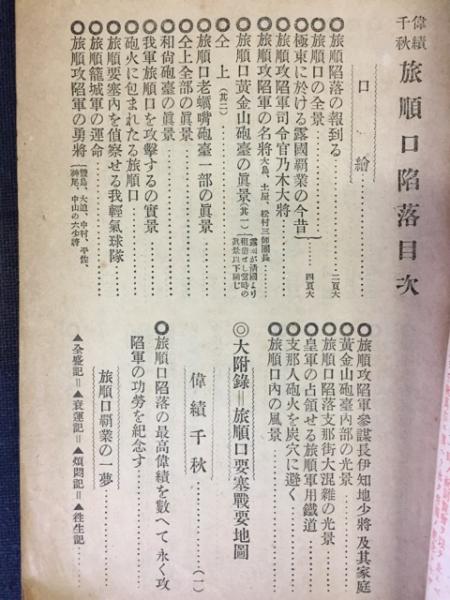 偉績千秋 旅順口陷落目次
口繪
◎旅順陷落の報到る
◎旅順口の全景………二頁大
◎極東に於ける露國覇業の今昔………四頁大
◎旅順攻陷軍司令官乃木大將
◎旅順攻陷軍の名將 大島、土屋、松村三師團長………
◎旅順口黃金山砲臺の眞景(其一) 露國が淸國より租借せし當時の眞景以下同じ
◎仝上(其二)………
◎旅順口老蠣嘴砲臺一部の眞景………
◎仝上全部の眞景………
◎和尙砲臺の眞景………
◎我軍旅順口を攻擊するの實景
◎砲火に包まれたる旅順口………
◎旅順要塞內を偵察せる我輕氣球隊
◎旅順籠城軍の運命………
◎旅順攻陷軍の勇將 豐島、大迫、中村、平佐、神尾、中山の六少將
◎旅順攻陷軍參謀長伊知地少將及其家庭
◎黃金山砲臺內部の光景………
◎旅順口陷落支那街大混雜の光景
◎皇軍の占領せる旅順軍用鐵道
◎支那人砲火を炭穴に避く………
◎旅順口內の風景………
◎大附錄=旅順口要塞戰要地圖
偉績千秋………(一)
●旅順口陷落の最高偉績を數へて永く攻
陷軍の功勞を紀念す………
旅順口覇業の一夢
▲全盛記=▲衰運記=▲煩悶記=▲往生記………